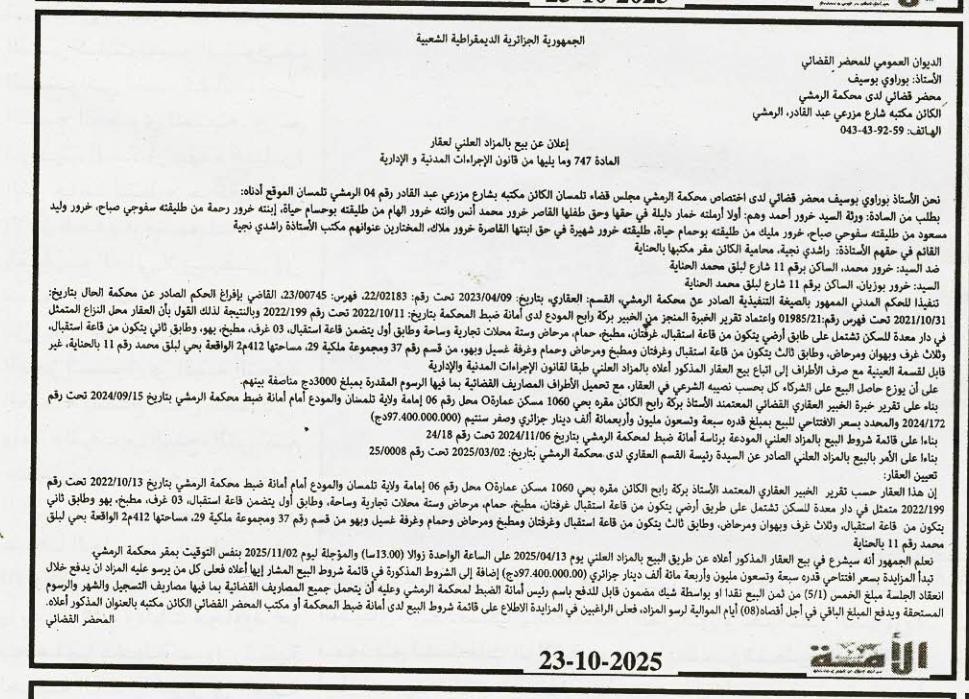 23-10-2025
الجمهورية الجزائرية الديمقراطية الشعبية
الديوان العمومي للمحضر القضائي
الأستاذ: بوراوي بوسيف
محضر قضائي لدى محكمة الرمشي
الكائن مكتبه شارع مزرعي عبد القادر، الرمشي
الهاتف: 59-92-43-043
إعلان عن بيع بالمزاد العلني لعقار
المادة 747 وما يليها من قانون الإجراءات المدنية و الإدارية
نحن الأستاذ بوراوي بوسيف محضر قضائي لدى اختصاص محكمة الرمشي مجلس قضاء تلمسان الكائن مكتبه بشارع مزرعي عبد القادر رقم 04 الرمشي تلمسان الموقع أدناه:
بطلب من السادة: ورثة السيد خرور أحمد وهم: أولا أرملته خمار دليلة في حقها وحق طفلها القاصر خرور محمد أنس وانته خرور الهام من طليقته بوحسام حياة، إبنته خرور رحمة من طليقته سفوحي صباح، خرور وليد
مسعود من طليقته سفوحي صباح، خرور مليك من طليقته بوحمام حياة، طليقته خرور شهيرة في حق ابنتها القاصرة خرور ملاك، المختارين عنوانهم مكتب الأستاذة راشدي نجية
القائم في حقهم الأستاذة: راشدي نجية، محامية الكائن مقر مكتبها بالحناية
ضد السيد: خرور محمد، الساكن برقم 11 شارع لبلق محمد الحناية
السيد: خرور بوزيان، الساكن برقم 11 شارع لبلق محمد الحناية
تنفيذا للحكم المدني الممهور بالصيغة التنفيذية الصادر عن محكمة الرمشي، القسم: العقاري، بتاريخ: 2023/04/09 تحت رقم: 22/02183، فهرس: 23/00745، القاضي بإفراغ الحكم الصادر عن محكمة الحال بتاريخ:
2021/10/31 تحت فهرس رقم:01985/21 واعتماد تقرير الخبرة المنجز من الخبير بركة رابح المودع لدى أمانة ضبط المحكمة بتاريخ: 2022/10/11 تحت رقم 2022/199 وبالنتيجة لذلك القول بأن العقار محل النزاع المتمثل
في دار معدة للسكن تشتمل على طابق أرضي يتكون من قاعة استقبال، غرفتان، مطبخ، حمام، مرحاض وستة محلات تجارية وساحة وطابق أول يتضمن قاعة استقبال، 03 غرف، مطبخ، بهو، وطابق ثاني يتكون من قاعة استقبال،
وثلاث غرف وبهوان ومرحاض، وطابق ثالث يتكون من قاعة استقبال وغرفتان ومطبخ ومرحاض وحمام وغرفة غسيل وبهو، من قسم رقم 37 ومجموعة ملكية 29، مساحتها 412م2 الواقعة بحي لبلق محمد رقم 11 بالحناية، غير
قابل لقسمة العينية مع صرف الأطراف إلى اتباع بيع العقار المذكور أعلاه بالمزاد العلني طبقا لقانون الإجراءات المدنية والإدارية
على أن يوزع حاصل البيع على الشركاء كل بحسب نصيبه الشرعي في العقار، مع تحميل الأطراف المصاريف القضائية بما فيها الرسوم المقدرة بمبلغ 3000دج مناصفة بينهم.
بناء على تقرير خبرة الخبير العقاري القضائي المعتمند الأستاذ بركة رابح الكائن مقره بحي 1060 مسكن عمارةO محل رقم 06 إمامة ولاية تلمسان والمودع أمام أمانة ضبط محكمة الرمشي بتاريخ 2024/09/15 تحت رقم
2024/172 والمحدد بسعر الافتتاحي للبيع بمبلغ قدره سبعة وتسعون مليون وأربعمائة ألف دينار جزائري وصفر سنتيم (97.400.000.000دج)
بناءا على قائمة شروط البيع بالمزاد العلني المودعة برئاسة أمانة ضبط لمحكمة الرمشي بتاريخ 2024/11/06 تحت رقم 24/18
بناءا على الأمر بالبيع بالمزاد العلني الصادر عن السيدة رئيسة القسم العقاري لدى محكمة الرمشي بتاريخ: 2025/03/02 تحت رقم 25/0008
تعيين العقار:
إن هذا العقار حسب تقرير الخبير العقاري المعتمد الأستاذ بركة رابح الكائن مقره بحي 1060 مسكن عمارةO محل رقم 06 إمامة ولاية تلمسان والمودع أمام أمانة ضبط محكمة الرمشي بتاريخ 2022/10/13 تحت رقم
2022/199 متمثل في دار معدة للسكن تشتمل على طريق أرضي يتكون من قاعة استقبال غرفتان، مطبخ، حمام، مرحاض وستة محلات تجارية وساحة، وطابق أول يتضمن قاعة استقبال، 03 غرف، مطبخ، بهو وطابق ثاني
يتكون من قاعة استقبال، وثلاث غرف وبهوان ومرحاض، وطابق ثالث يتكون من قاعة استقبال وغرفتان ومطبخ ومرحاض وحمام وغرفة غسيل وبهو من قسم رقم 37 ومجموعة ملكية 29، مساحتها 412م2 الواقعة بحي لبلق
محمد رقم 11 بالحناية
نعلم الجمهور أنه سيشرع في بيع العقار المذكور أعلاه عن طريق البيع بالمزاد العلني يوم 2025/04/13 على الساعة الواحدة زوالا (13.00سا) والمؤجلة ليوم 2025/11/02 بنفس التوقيت بمقر محكمة الرمشي.
تبدأ المزايدة بسعر افتتاحي قدره سبعة وتسعون مليون وأربعة مائة ألف دينار جزائري (97.400.000.00دج) إضافة إلى الشروط المذكورة في قائمة شروط البيع المشار إيها أعلاه فعلى كل من يرسو عليه المزاد ان يدفع خلال
انعقاد الجلسة مبلغ الخمس (5/1) من ثمن البيع نقدا او بواسطة شيك مضمون قابل للدفع باسم رئيس أمانة الضبط لمحكمة الرمشي وعليه أن يتحمل جميع المصاريف القضائية بما فيها مصاريف التسجيل والشهر والرسوم
المستحقة ويدفع المبلغ الباقي في أجل أقصاه(08) أيام الموالية لرسو المزاد، فعلى الراغبين في المزايدة الاطلاع على قائمة شروط البيع لدى أمانة ضبط المحكمة أو مكتب المحضر القضائي الكائن مكتبه بالعنوان المذكور أعلاه.
المحضر القضائي
الأمة
23-10-2025